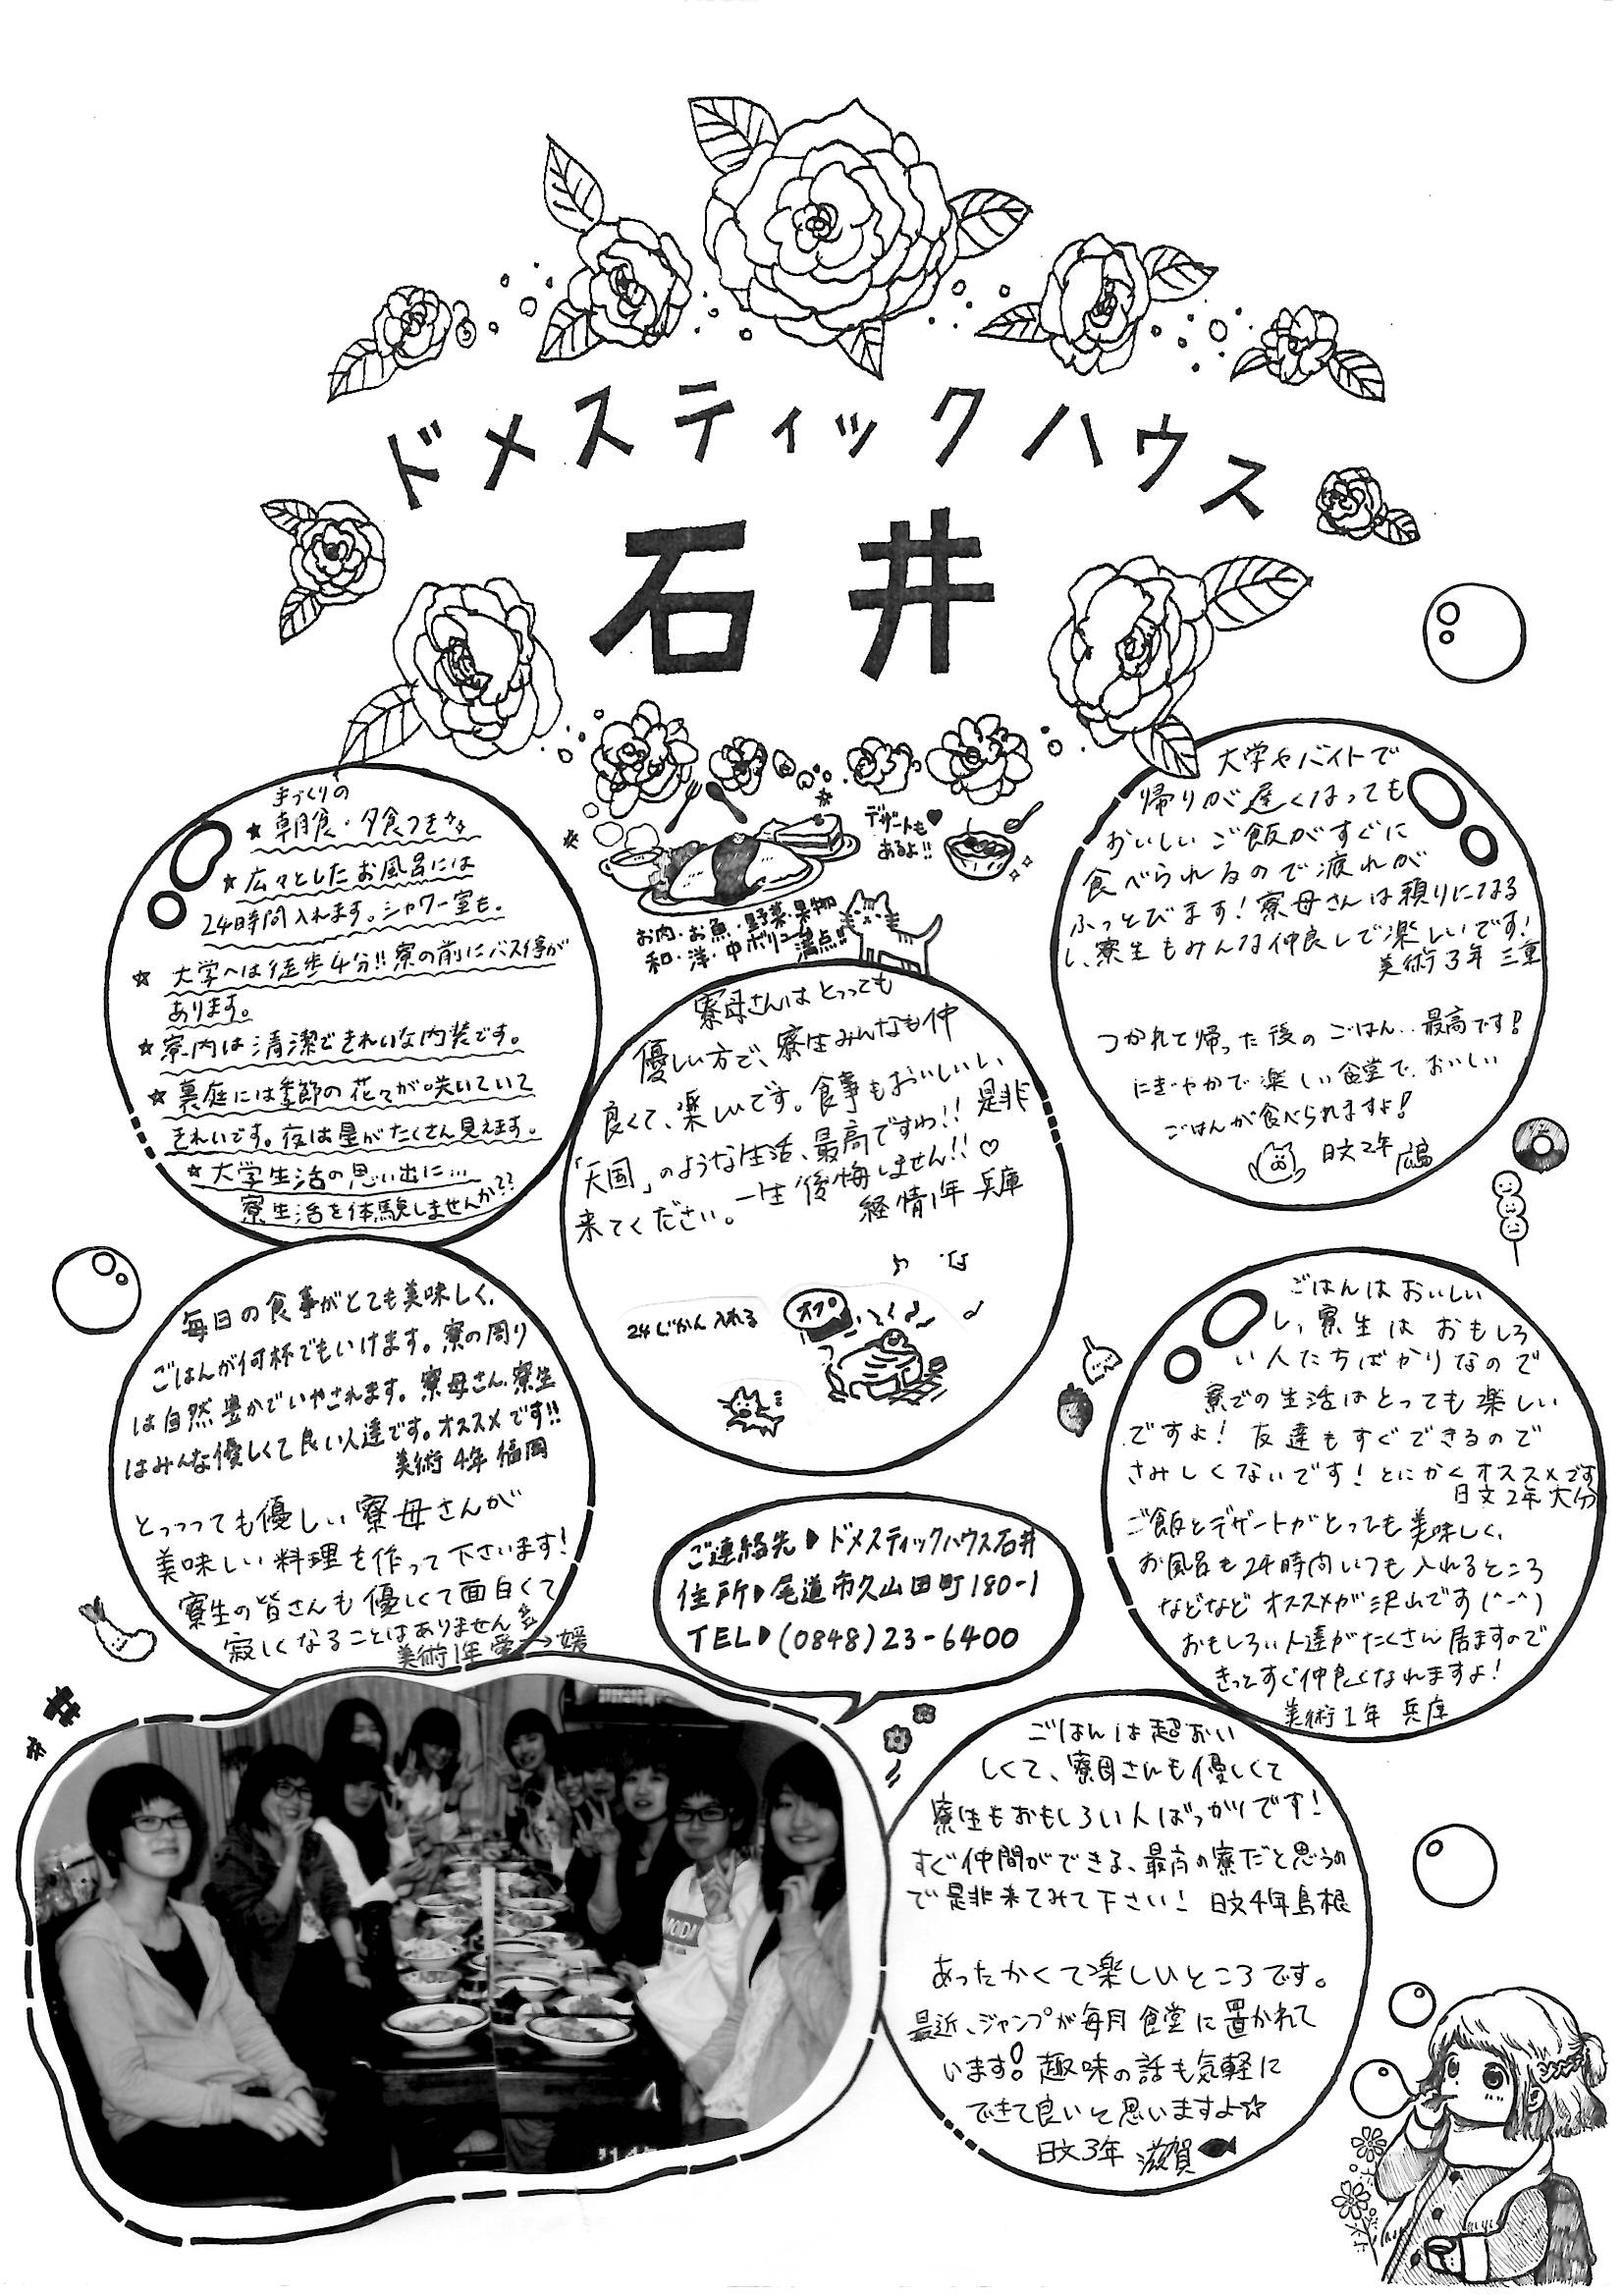 ドメスティックハウス
石井
手づくりの
★朝食・夕食つき☆
★広々としたお風呂には
24時間入れます。シャワー室も。
★大学へは徒歩4分!!寮の前にバス停が
あります。
★寮内は清潔できれいな内装です。
★裏庭には季節の花々が咲いていて
きれいです。夜は星がたくさん見えます。
★大学生活の思い出に…
寮生活を体験しませんか??
デザートも♥
あるよ!!
お肉・お魚・野菜・果物
和・洋・中ボリューム
満点!!
大学やバイトで
帰りが遅くなっても
おいしいご飯がすぐに
食べられるので疲れが
ふっとびます!寮母さんは頼りになる
し、寮生もみんな仲良しで楽しいです!
美術3年 三重
つかれて帰った後のごはん..最高です!
にぎやかで楽しい食堂で、おいしい
ごはんが食べられますよ!
日文2年 広島
寮母さんはとっっても
優しい方で、寮生みんなも仲
良くて、楽しいです。食事もおいしいし、
「天国」のような生活、最高ですわ!!是非
来てください。一生後悔しません!!♡
経情1年 兵庫
24じかん入れる
オフロ
毎日の食事がとても美味しく、
ごはんが何杯でもいけます。寮の周り
は自然豊かでいやされます。寮母さん、寮生
はみんな優しくて良い人達です。オススメです!!
美術4年 福岡
とっっっても優しい寮母さんが
美味しい料理を作って下さいます!
寮生の皆さんも優しくて面白くて
寂しくなることはありません
美術1年 愛媛
ごはんはおいしい
し、寮生はおもしろ
い人たちばかりなので
寮での生活はとっても楽しい
ですよ!友達もすぐできるので
さみしくないです!とにかくオススメです
日文2年 大分
ご飯とデザートがとっても美味しく、
お風呂も24時間いつも入れるところ
などなどオススメが沢山です(^-^)
おもしろい人達がたくさん居ますので
きっとすぐ仲良くなれますよ!
美術1年 兵庫
ご連絡先▶ドメスティックハウス石井
住所▶尾道市久山田町180-1
TEL▶(0848)23-6400
ごはんは超おい
しくて、寮母さんも優しくて
寮生もおもしろい人ばっかりです!
すぐ仲間ができる、最高の寮だと思うの
で是非来てみて下さい! 日文4年島根
あったかくて楽しいところです。
最近、ジャンプが毎月食堂に置かれて
います!趣味の話も気軽に
できて良いと思いますよ☆
日文3年 滋賀